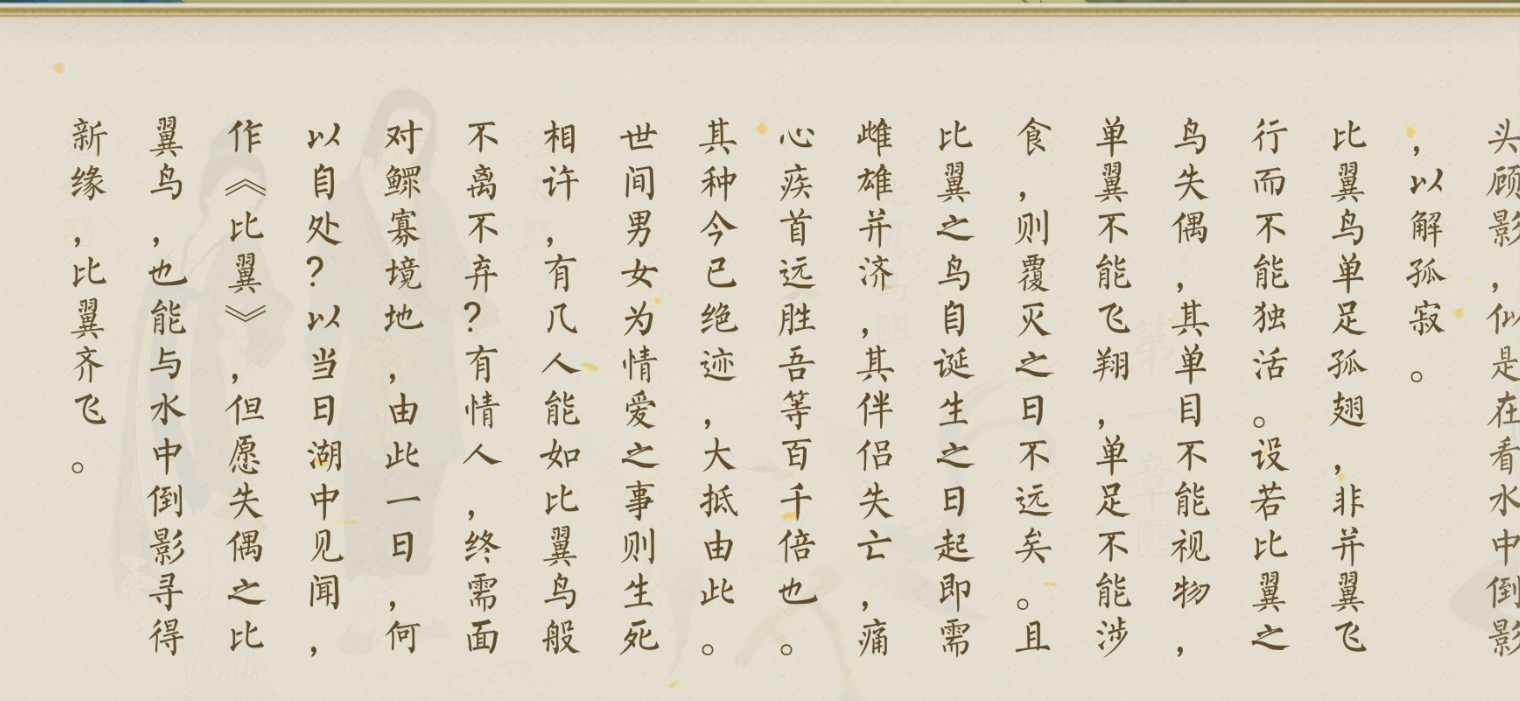 头顾影，似是在看水中倒影
，以解孤寂。
比翼鸟单足孤翅，非并翼飞
行而不能独活。设若比翼之
鸟失偶，其单目不能视物，
单翼不能飞翔，单足不能涉
食，则覆灭之日不远矣。且
比翼之鸟自诞生之日起即需
雌雄并济，其伴侣失亡，痛
心疾首远胜吾等百千倍也。
其种今已绝迹，大抵由此。
世间男女为情爱之事则生死
相许，有几人能如比翼鸟般
不离不弃？有情人，终需面
对鳏寡境地，由此一日，何
以自处？以当日湖中见闻，
作《比翼》，但愿失偶之比
翼鸟，也能与水中倒影寻得
新缘，比翼齐飞。